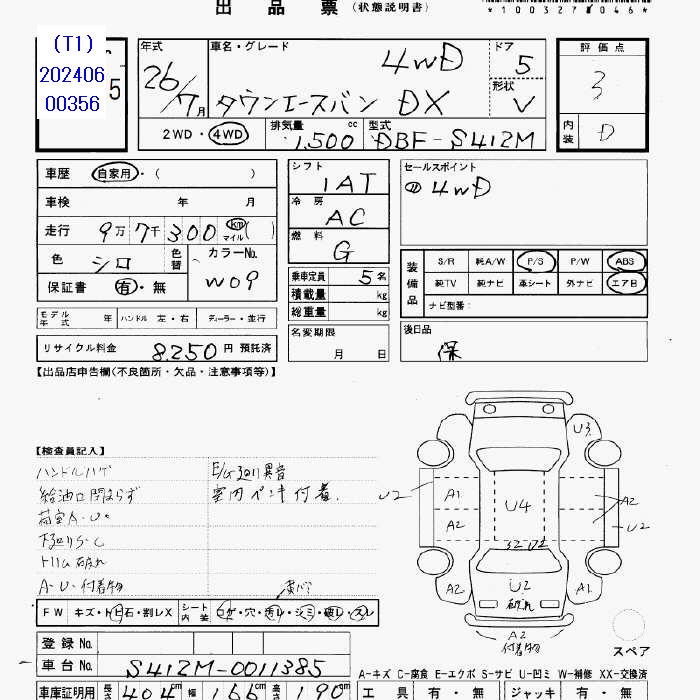 出品票(状態説明書)
*100327 046*
(T1)
202406
00356
5
年式 車名・グレード ドア 評価点
26/7月 4WD 5 3
タウンエースバン DX 形状 V
2WD・4WD 排気量 1,500 cc 型式 DBF-S412M 内装 D
車歴 自家用・( )
シフト 1AT
セールスポイント
4WD
車検 年 月
冷房 AC
走行 9万7千300 km マイル( )
燃料 G
色 シロ 色替 カラーNo. W09
保証書 有・無
乗車定員 5名
積載量 kg
総重量 kg
装備品 S/R 純A/W P/S P/W ABS
純TV 純ナビ 革シート 外ナビ エアB
ナビ型番:
モデル年式 年 ハンドル 左・右 ディーラー・並行
名変期限 月 日
後日品
保
リサイクル料金 8,250円 預託済
【出品店申告欄(不良箇所・欠品・注意事項等)】
【検査員記入】
ハンドルハゲ E/G廻り異音
給油口閉まらず 室内ペンキ付着.
荷室A・U
下廻りS・C
トリム破れ
A・U・付着物
U3
U2 A1 U4 A2
A2 U2
S2 U2
A2 U2 破れ A1
A2
付着物
スペア
FW キズ・ト石・割レX シート内装 コゲ・穴・汚レ・シミ・破レ・スレ
登録No.
車台No. S412M-0011385
A-キズ C-腐食 E-エクボ S-サビ U-凹ミ W-補修 XX-交換済
車庫証明用 長さ 404cm 幅 166cm 高さ 190cm
工具 有・無 ジャッキ 有・無